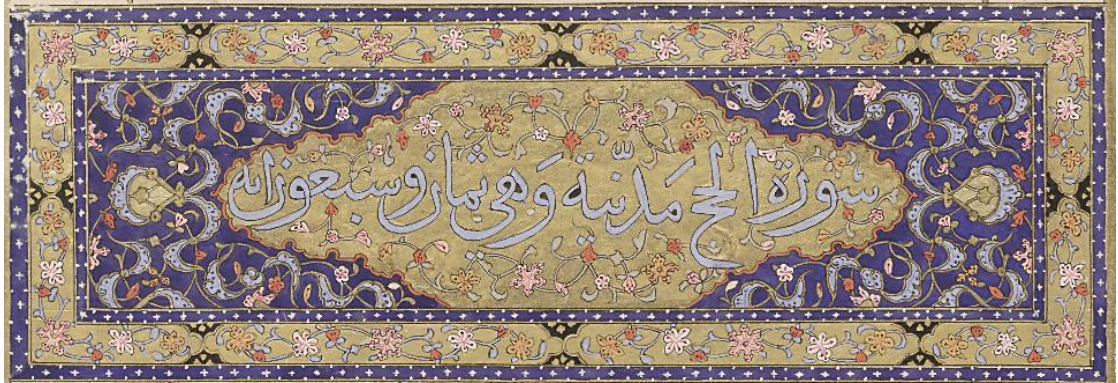 سورة الحج مدنیة وهي ثمان وسبعون اٰیه